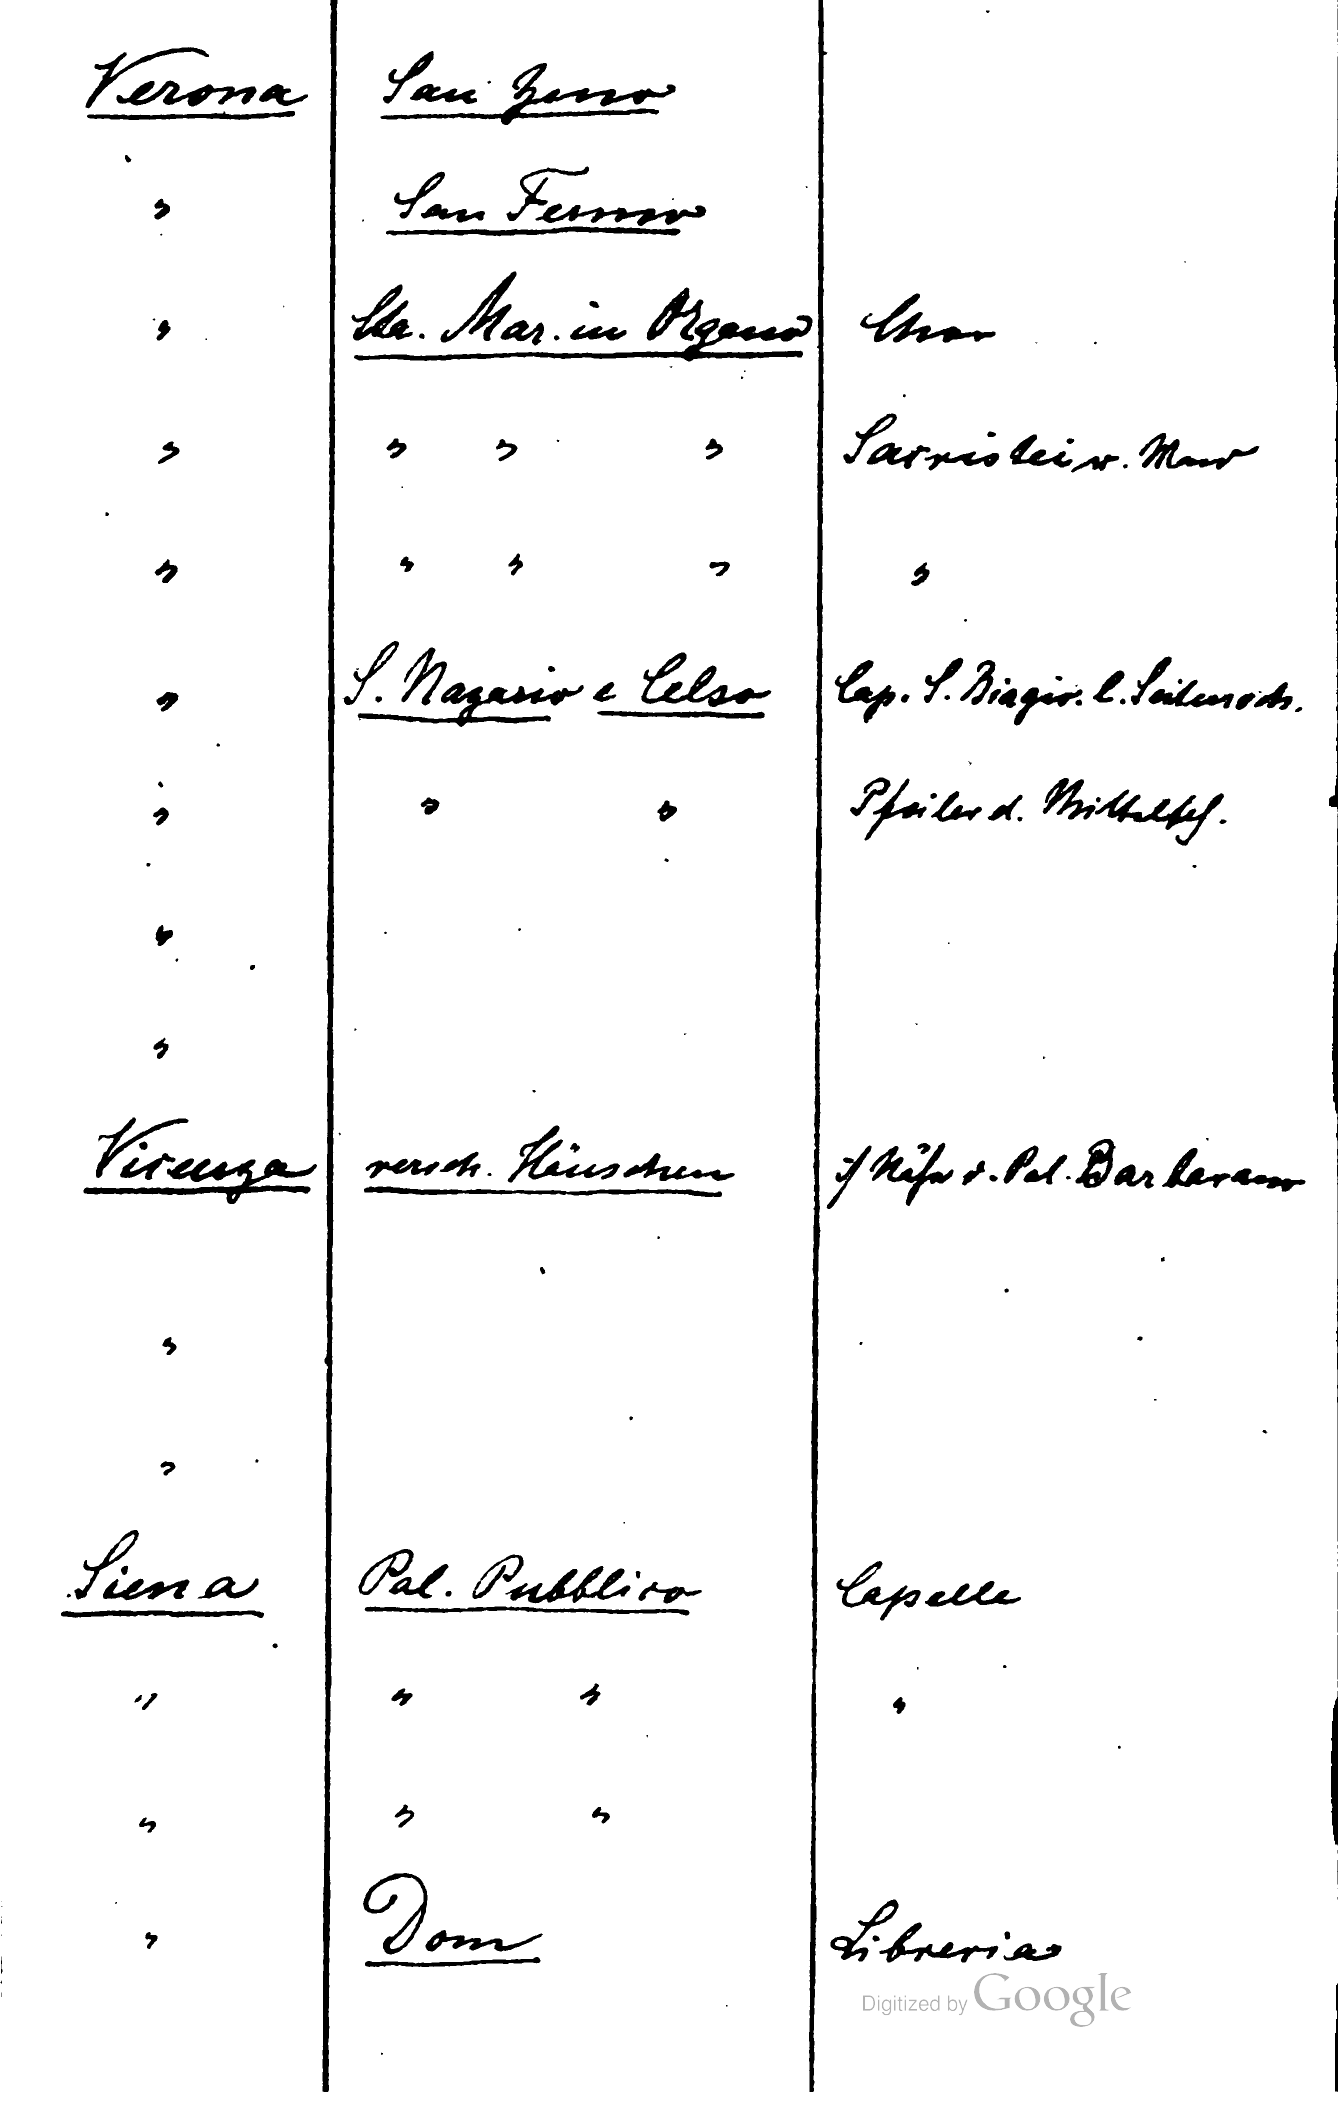 Verona San Zeno
" San Fermo
" Sta. Mar. in Organo Chor
" " " " Sacristei
" " " " "
" S. Nazario e Celso Cap. S. Biagio. l. Seitensch.
" " " Pfeiler d. Mittelsch.
"
"
Vicenza versch. Häuschen i/ Nähe v. Pal. Barbarano
"
"
Siena Pal. Pubblico Capelle
" " " "
" " "
" Dom Libreria
Digitized by Google